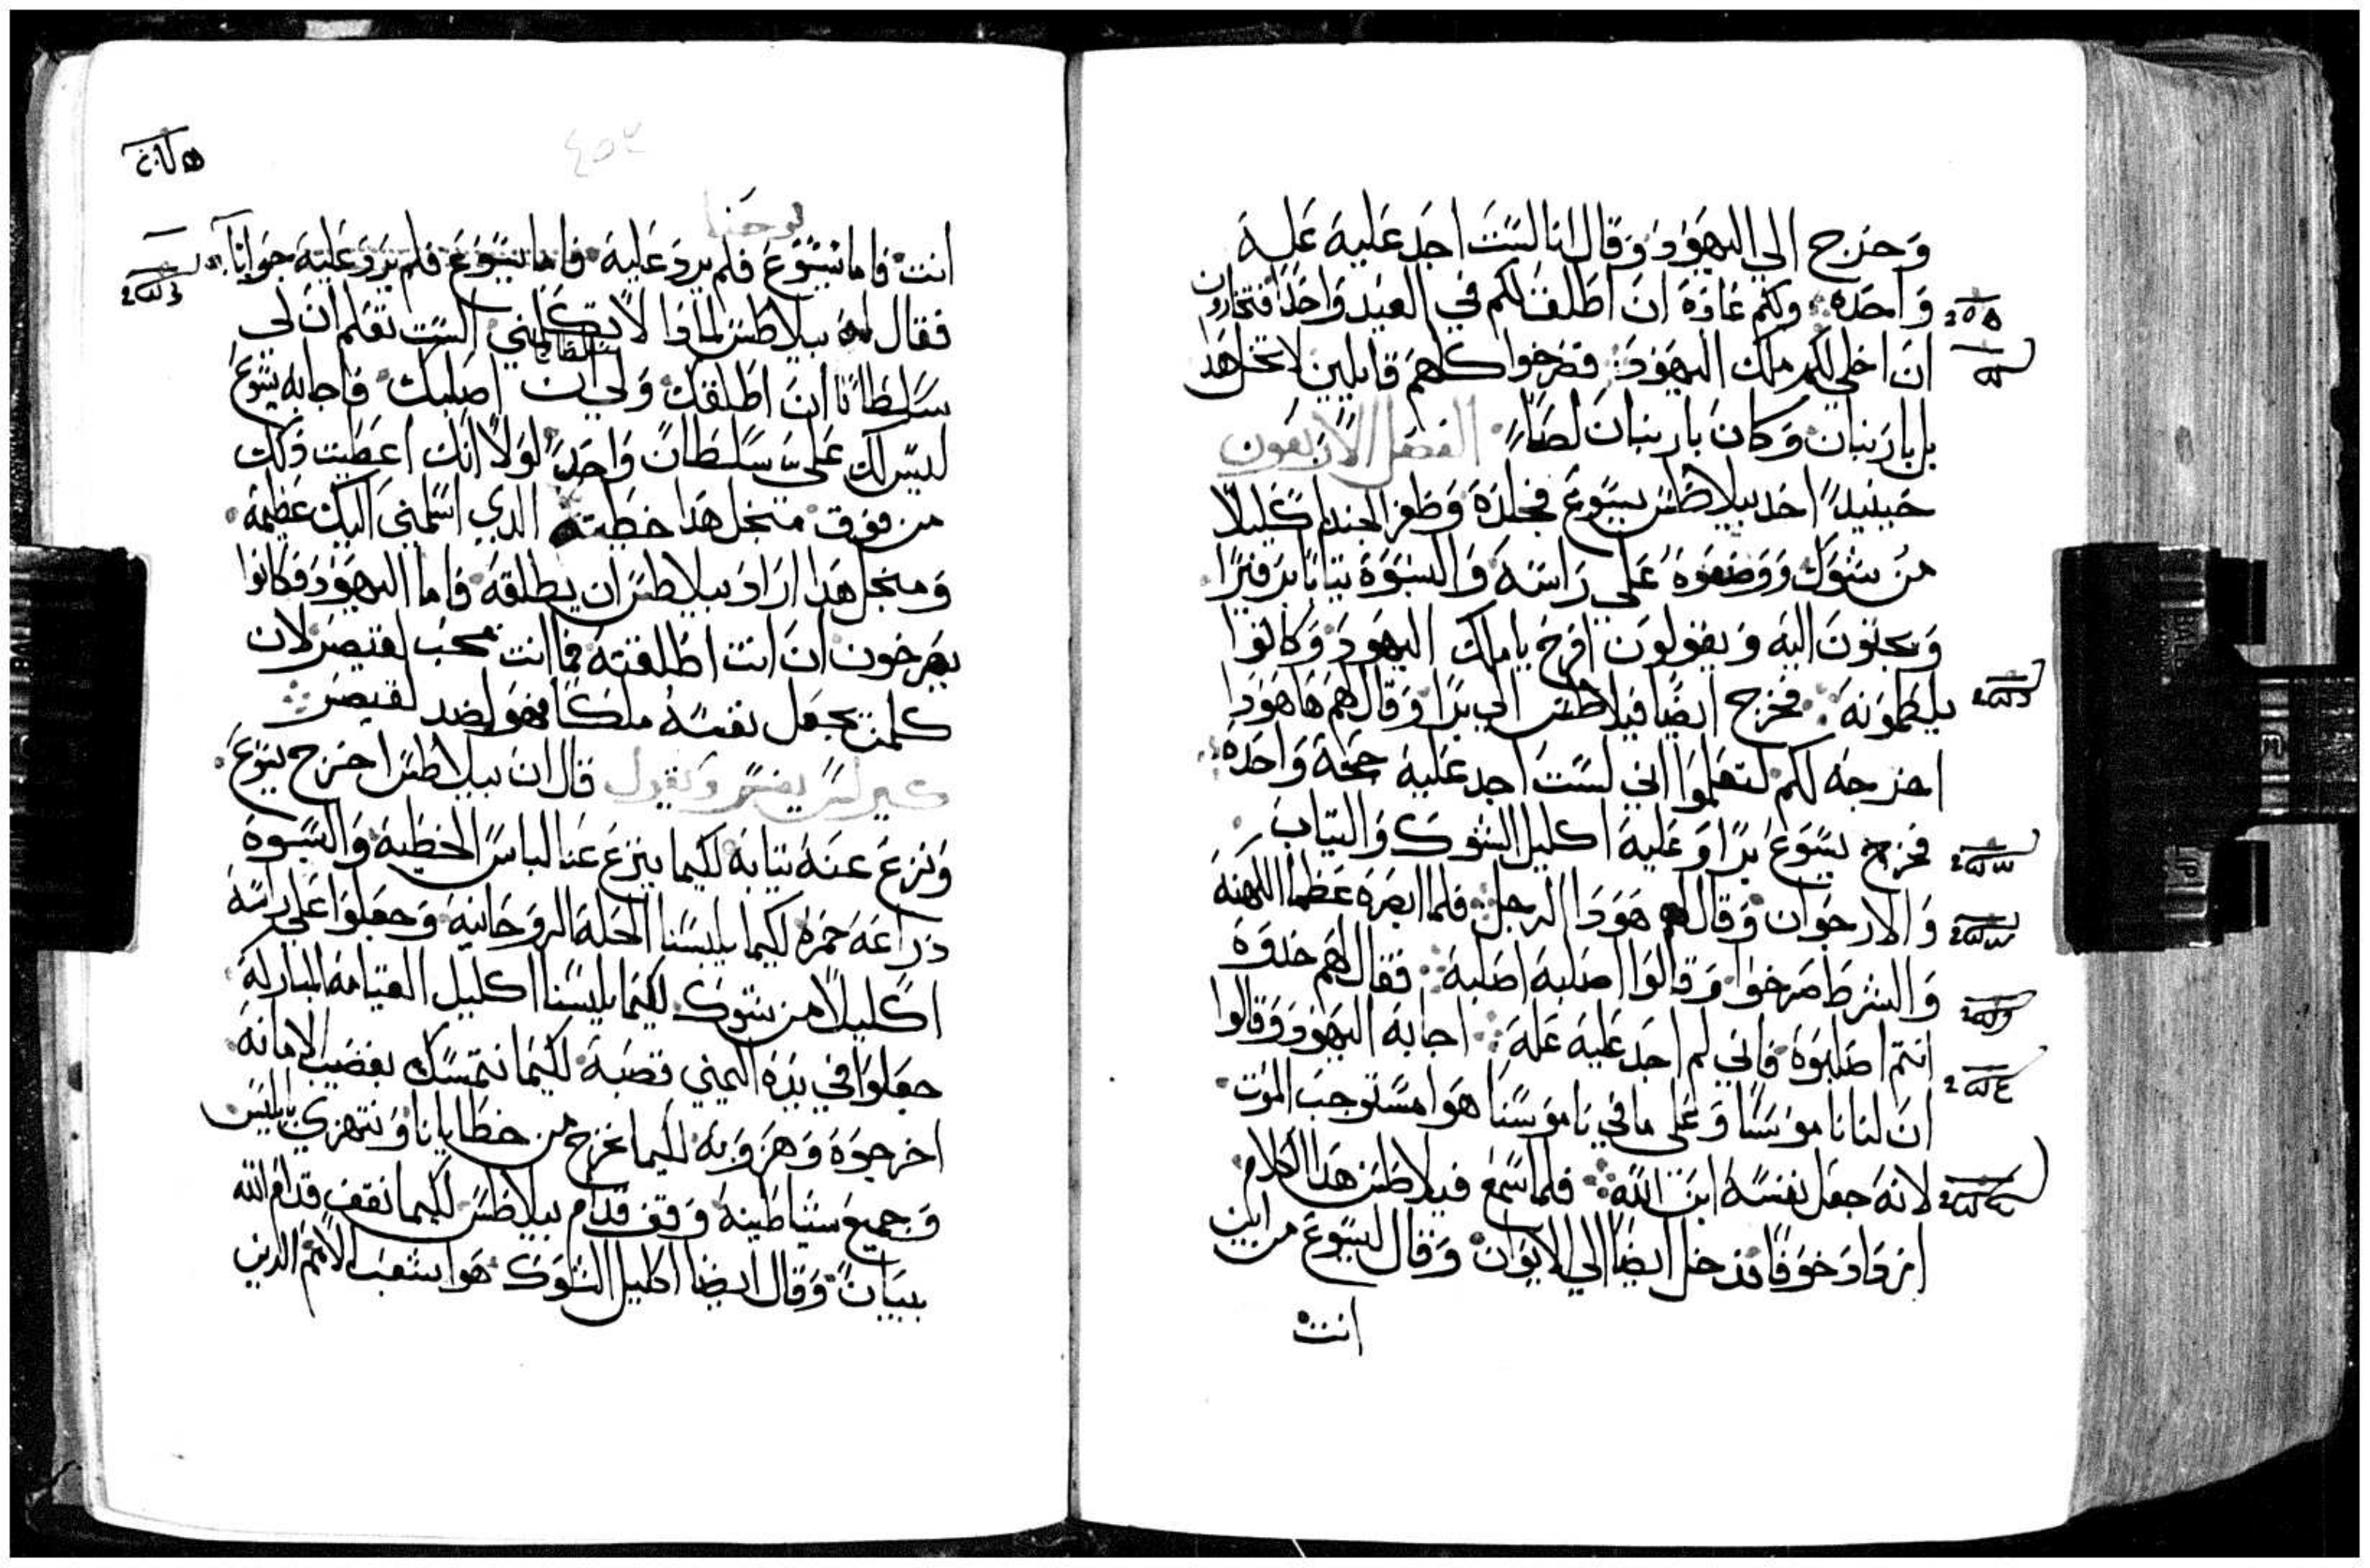 وَخرج الي اليهود وقال انا لست اجد عليه عله
واحده ولكم عادة ان اطلق لكم في العيد واحدًا فتختارون
ان اخلي لكم ملك اليهود فصرخوا كلهم قايلين لا تخل هدا
بل بارنبان وكان بارنبان لصًا الفصل الاربعون
حينيدٍ اخد بيلاطس يسوع فجلده وظفر الجند اكليلا
من شوك ووضعوه على راسه والبسوه تيابًا برفيرًا
ويجتون اليه ويقولون افرح يا ملك اليهود وكانوا
يلطمونه فخرج ايضًا فيلاطس الي برا وقال لهم ها هودا
اخرجه لكم لتعلموا اني لست اجد عليه حجة واحدة
فخرج يسوع برًا وعليه اكليل الشوك والتياب
والارجوان وقال لهم هودا الرجل فلما ابصره عظما الكهنه
والشرط صرخوا وقالوا اصلبه اصلبه فقال لهم خدوه
انتم اصلبوه فاني لم اجد عليه عله اجابه اليهود وقالوا
ان لنا ناموسًا وعلى ما في ناموسنا هو مستوجب الموت
لانه جعل نفسه ابن الله فلما سمع فيلاطس هدا الكلام
ازداد خوفًا فدخل ايضًا الي الايوان وقال ليسوع من اين
انت
٤٥٢
يوحنا
انت فاما يسوع فلم يرد عليه فاما يسوع فلم يرد عليه جوابًا
فقال له بيلاطس لمادا لا تكلمني الست تعلم ان لي
سلطانًا ان اطلقك ولي ان اصلبك فاجابه يسوع
ليس لك علي سلطان واحد لولا انك اعطيت دلك
من فوق منجل هدا خطية الدي اسلمني اليك عظيمة
ومنجل هدا اراد بيلاطس ان يطلقه فاما اليهود فكانوا
يصرخون ان انت اطلقته فما انت محب لقيصر لان
كلمن يجعل نفسه ملكًا فهو ضد لقيصر
كيرلس يفسر ويقول قال ان بيلاطس اخرج يسوع
ونزع عنه تيابه لكيما ينزع عنا لباس الخطية والبسوه
دراعه حمره لكيما يلبسنا الحلة الروحانية وجعلوا على راسه
اكليلا من شوك لكيما يلبسنا اكليل القيامة المباركة
جعلوا في يده اليمني قصبة لكيما نتمسك بقضيب الامانة
اخرجوه وهزوا به لكيما نخرج من خطايانا ونتهزي بابليس
وجميع شياطينه وقف قدام بيلاطس لكيما نقف قدام الله
ببيان وقال ايضا اكليل الشوك هو شعب الامم الدين